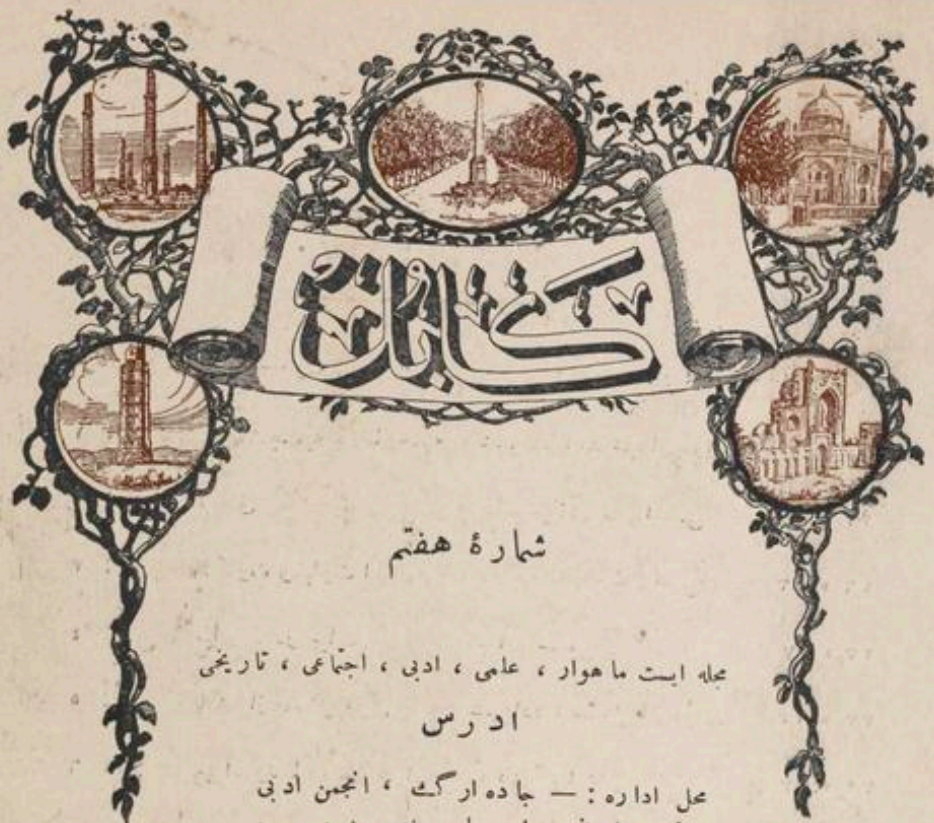 کابل
شمارهٔ هفتم
مجله ایست ماهوار ، علمی ، ادبی ، اجتماعی ، تاریخی
ادرس
محل اداره : — جاده ارگ ، انجمن ادبی